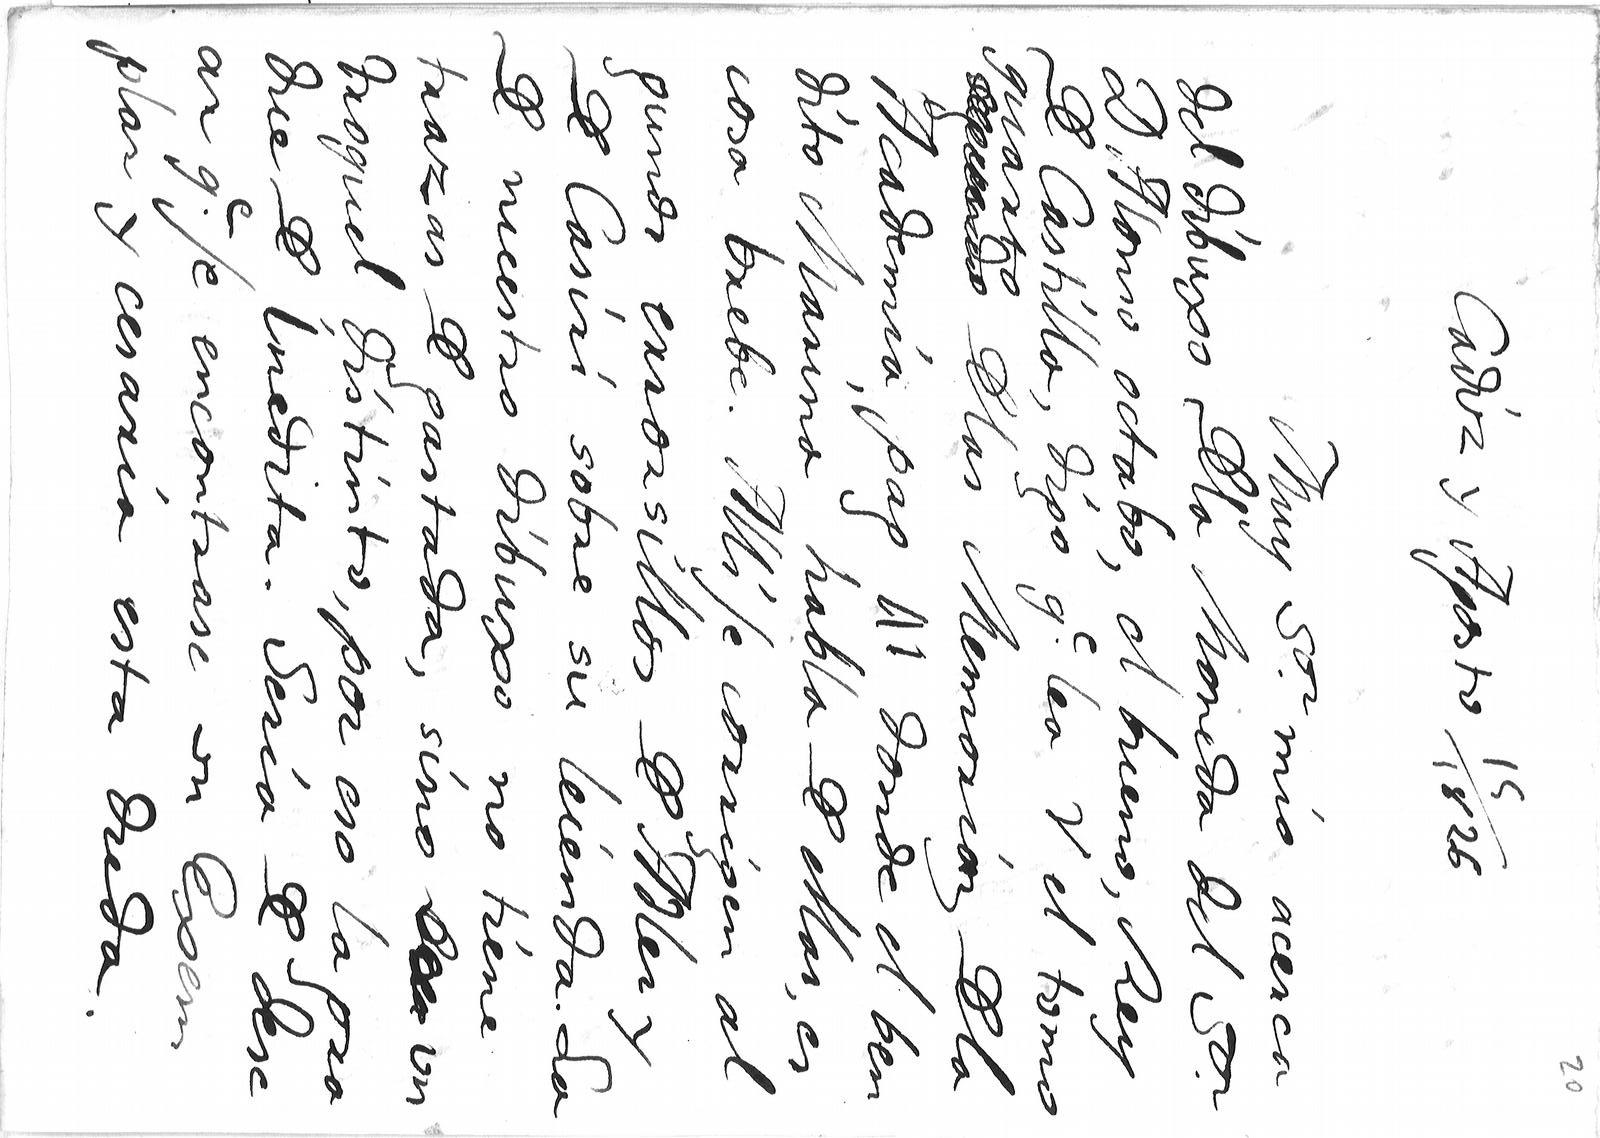 20
Cadiz y Agosto 15/1826
Muy S.or mio acerca
del dibuxo de la Moneda del S.or
D. Alonso octabo, el bueno, Rey
de Castilla, digo q.e lea V el tomo
quarto
segundo de las Memorias de la
Academia, pag 41 donde el ben
dito Marina habla de ellas, es
cosa brebe. Alli se corrigen al
gunos errorsillos de Adler y
de Casiri sobre su leienda. Lo
de nuestro dibuxo no tiene
trazas de gastada, sino sea un
troquel distinto, por eso la graz
due de inedita. Seria de dese
ar q.e se encontrase un Exem
plar y cesaria esta duda.